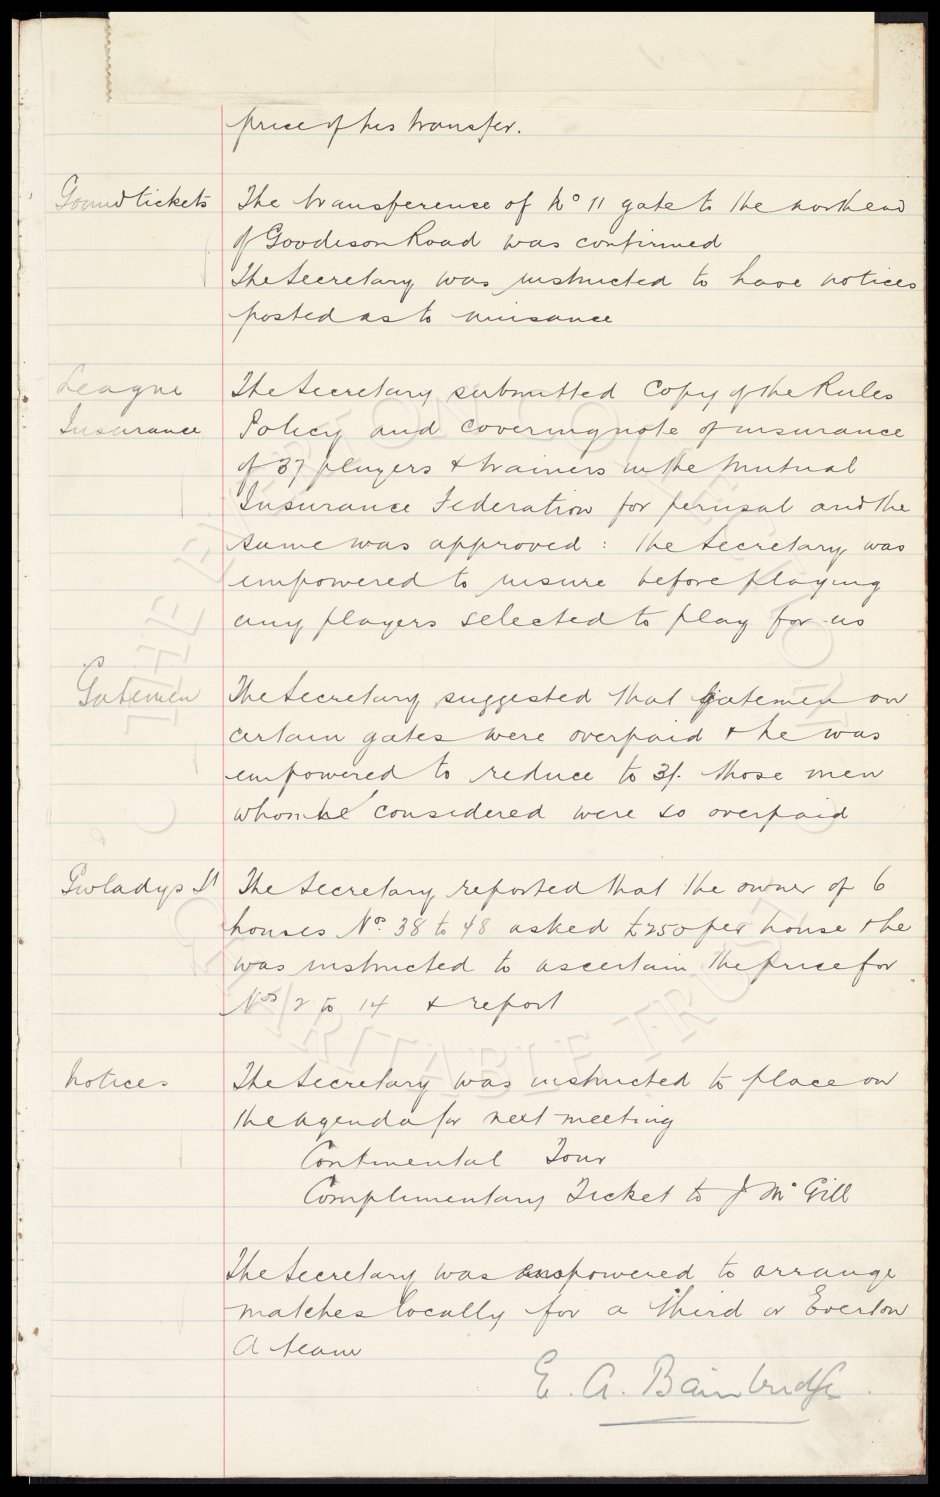 price of his transfer.
Ground tickets
The transference of No 11 gate to the north end
of Goodison Road was confirmed
The Secretary was instructed to have notices
posted as to nuisance
League
Insurance
The Secretary submitted copy of the Rules
Policy and covering note of insurance
of 37 players & trainers in the Mutual
Insurance Federation for perusal and the
same was approved : the Secretary was
empowered to insure before playing
any players selected to play for us
Gatemen
The Secretary suggested that gatemen on
certain gates were overpaid & he was
empowered to reduce to 3/- those men
whom he considered were so overpaid
Gwladys St
The Secretary reported that the owner of 6
houses No. 38 to 48 asked £250 per house & he
was instructed to ascertain the price for
Nos 2 to 14 & report
Notices
The Secretary was instructed to place on
the agenda for next meeting
Continental Tour
Complimentary Ticket to J McGill
The Secretary was empowered to arrange
matches locally for a third or Everton
A team
E. A. Bainbridge
THE EVERTON COLLECTION
CHARITABLE TRUST